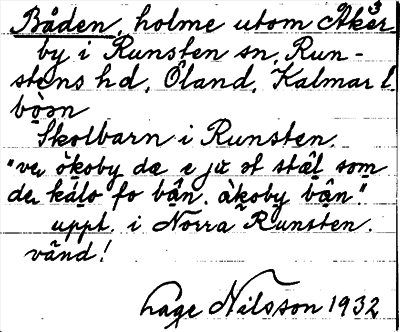 Båden, holme utom Åker
by i Runsten sn, Run-
stens hd, Öland, Kalmar l.
bọən
Skolbarn i Runsten.
"ve ökoby dæ e ju ət stäl som
de kálo fo bạn. àkoby bạn"
uppt. i Norra Runsten.
vänd!
Låge Nilsson 1932